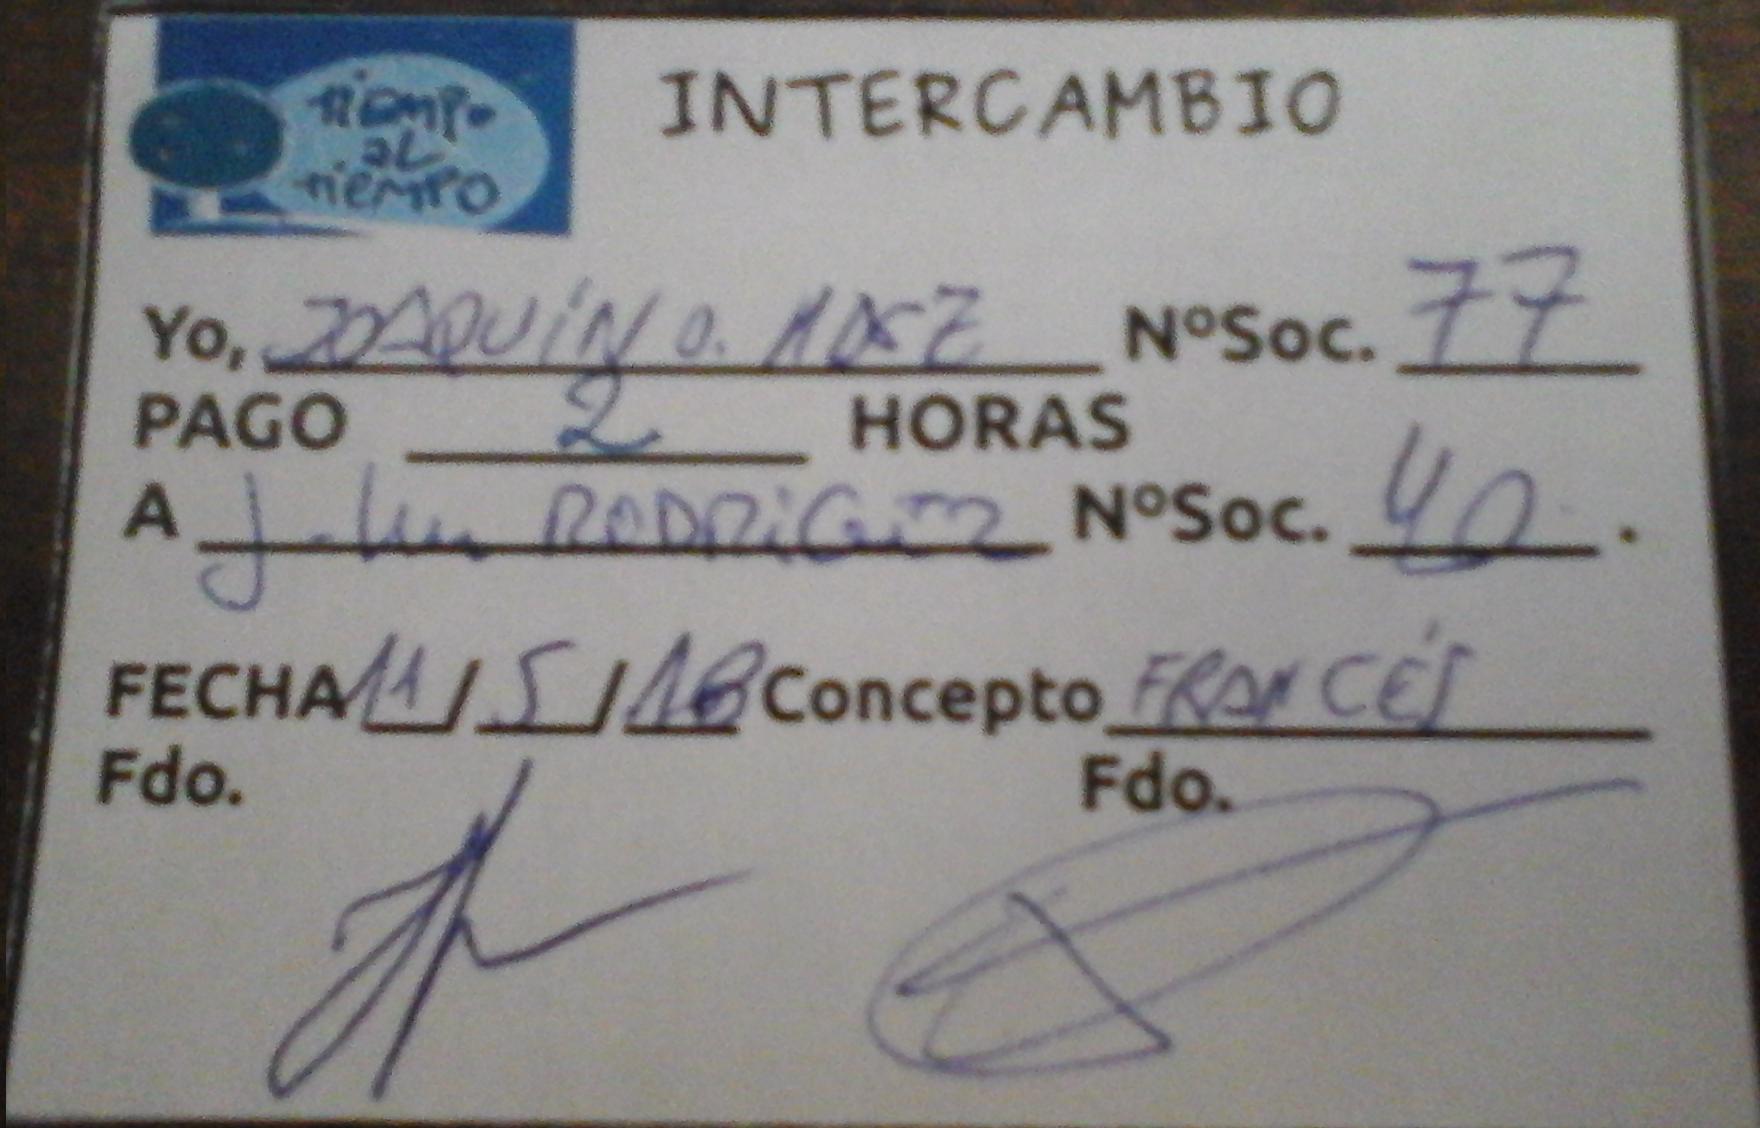 tiempo
al
tiempo
INTERCAMBIO
Yo, JOAQUÍN O. NºSoc. 77
PAGO 2 HORAS
A RODRIGUEZ NºSoc. 40.
FECHA 11/5/18 Concepto FRANCÉS
Fdo. Fdo.